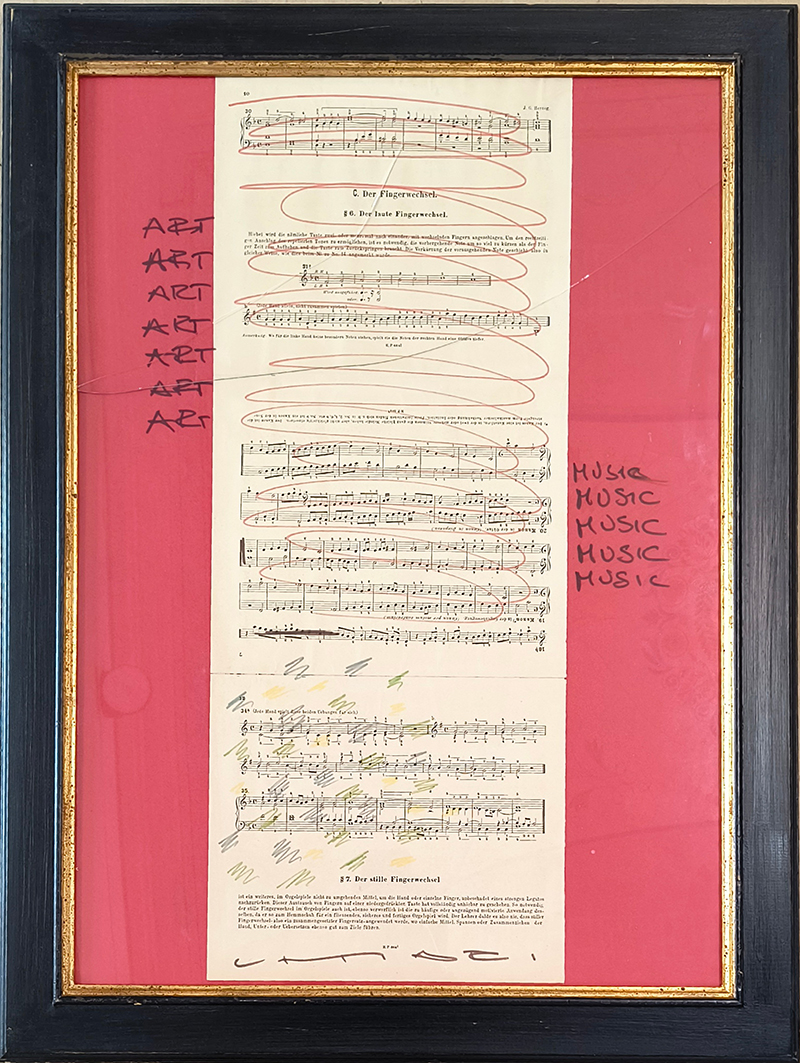 10
30
J. G. Herzog.
C. Der Fingerwechsel.
§ 6. Der laute Fingerwechsel.
Hiebei wird die nämliche Taste zwei- oder mehrmal nach einander, mit wechselnden Fingern angeschlagen. Um den rechtzeiti-
gen Anschlag des repetirten Tones zu ermöglichen, ist es notwendig, die vorhergehende Note um so viel zu kürzen als der Fin-
ger Zeit zum Aufheben und die Taste zum Zurückspringen braucht. Die Verkürzung der vorangehenden Note geschieht also in
gleicher Weise, wie dies beim
ART
ART
ART
ART
ART
ART
ART
31a
(Jede Hand allein, nicht zusammen spielen)
Anmerkung: Wo für die linke Hand keine besondern Noten stehen, spielt sie die Noten der rechten Hand eine Oktave tiefer.
MUSIC
MUSIC
MUSIC
MUSIC
MUSIC
20
19
34a (Jede Hand spielt diese beiden Uebungen für sich)
35.
§ 7. Der stille Fingerwechsel
ist ein weiteres, im Orgelspiele nicht zu umgehendes Mittel, um die Hand oder einzelne Finger, unbeschadet eines strengen Legatos
nachzurücken. Dieser Austausch von Fingern auf einer niedergedrückter Taste hat vollständig unhörbar zu geschehen. So notwendig
der stille Fingerwechsel im Orgelspiele auch ist, ebenso verwerflich ist die zu häufige oder ungenügend motivierte Anwendung des-
selben, da er so zum Hemmschuh für ein fliessendes, sicheres und fertiges Orgelspiel wird. Der Lehrer dulde es also nie, dass stiller
Fingerwechsel also ein zusammengesetzter Fingersatz angewendet werde, wo einfache Mittel, Spannen oder Zusammenziehen der
Hand, Unter- oder Uebersetzen ebenso gut zum Ziele führen.